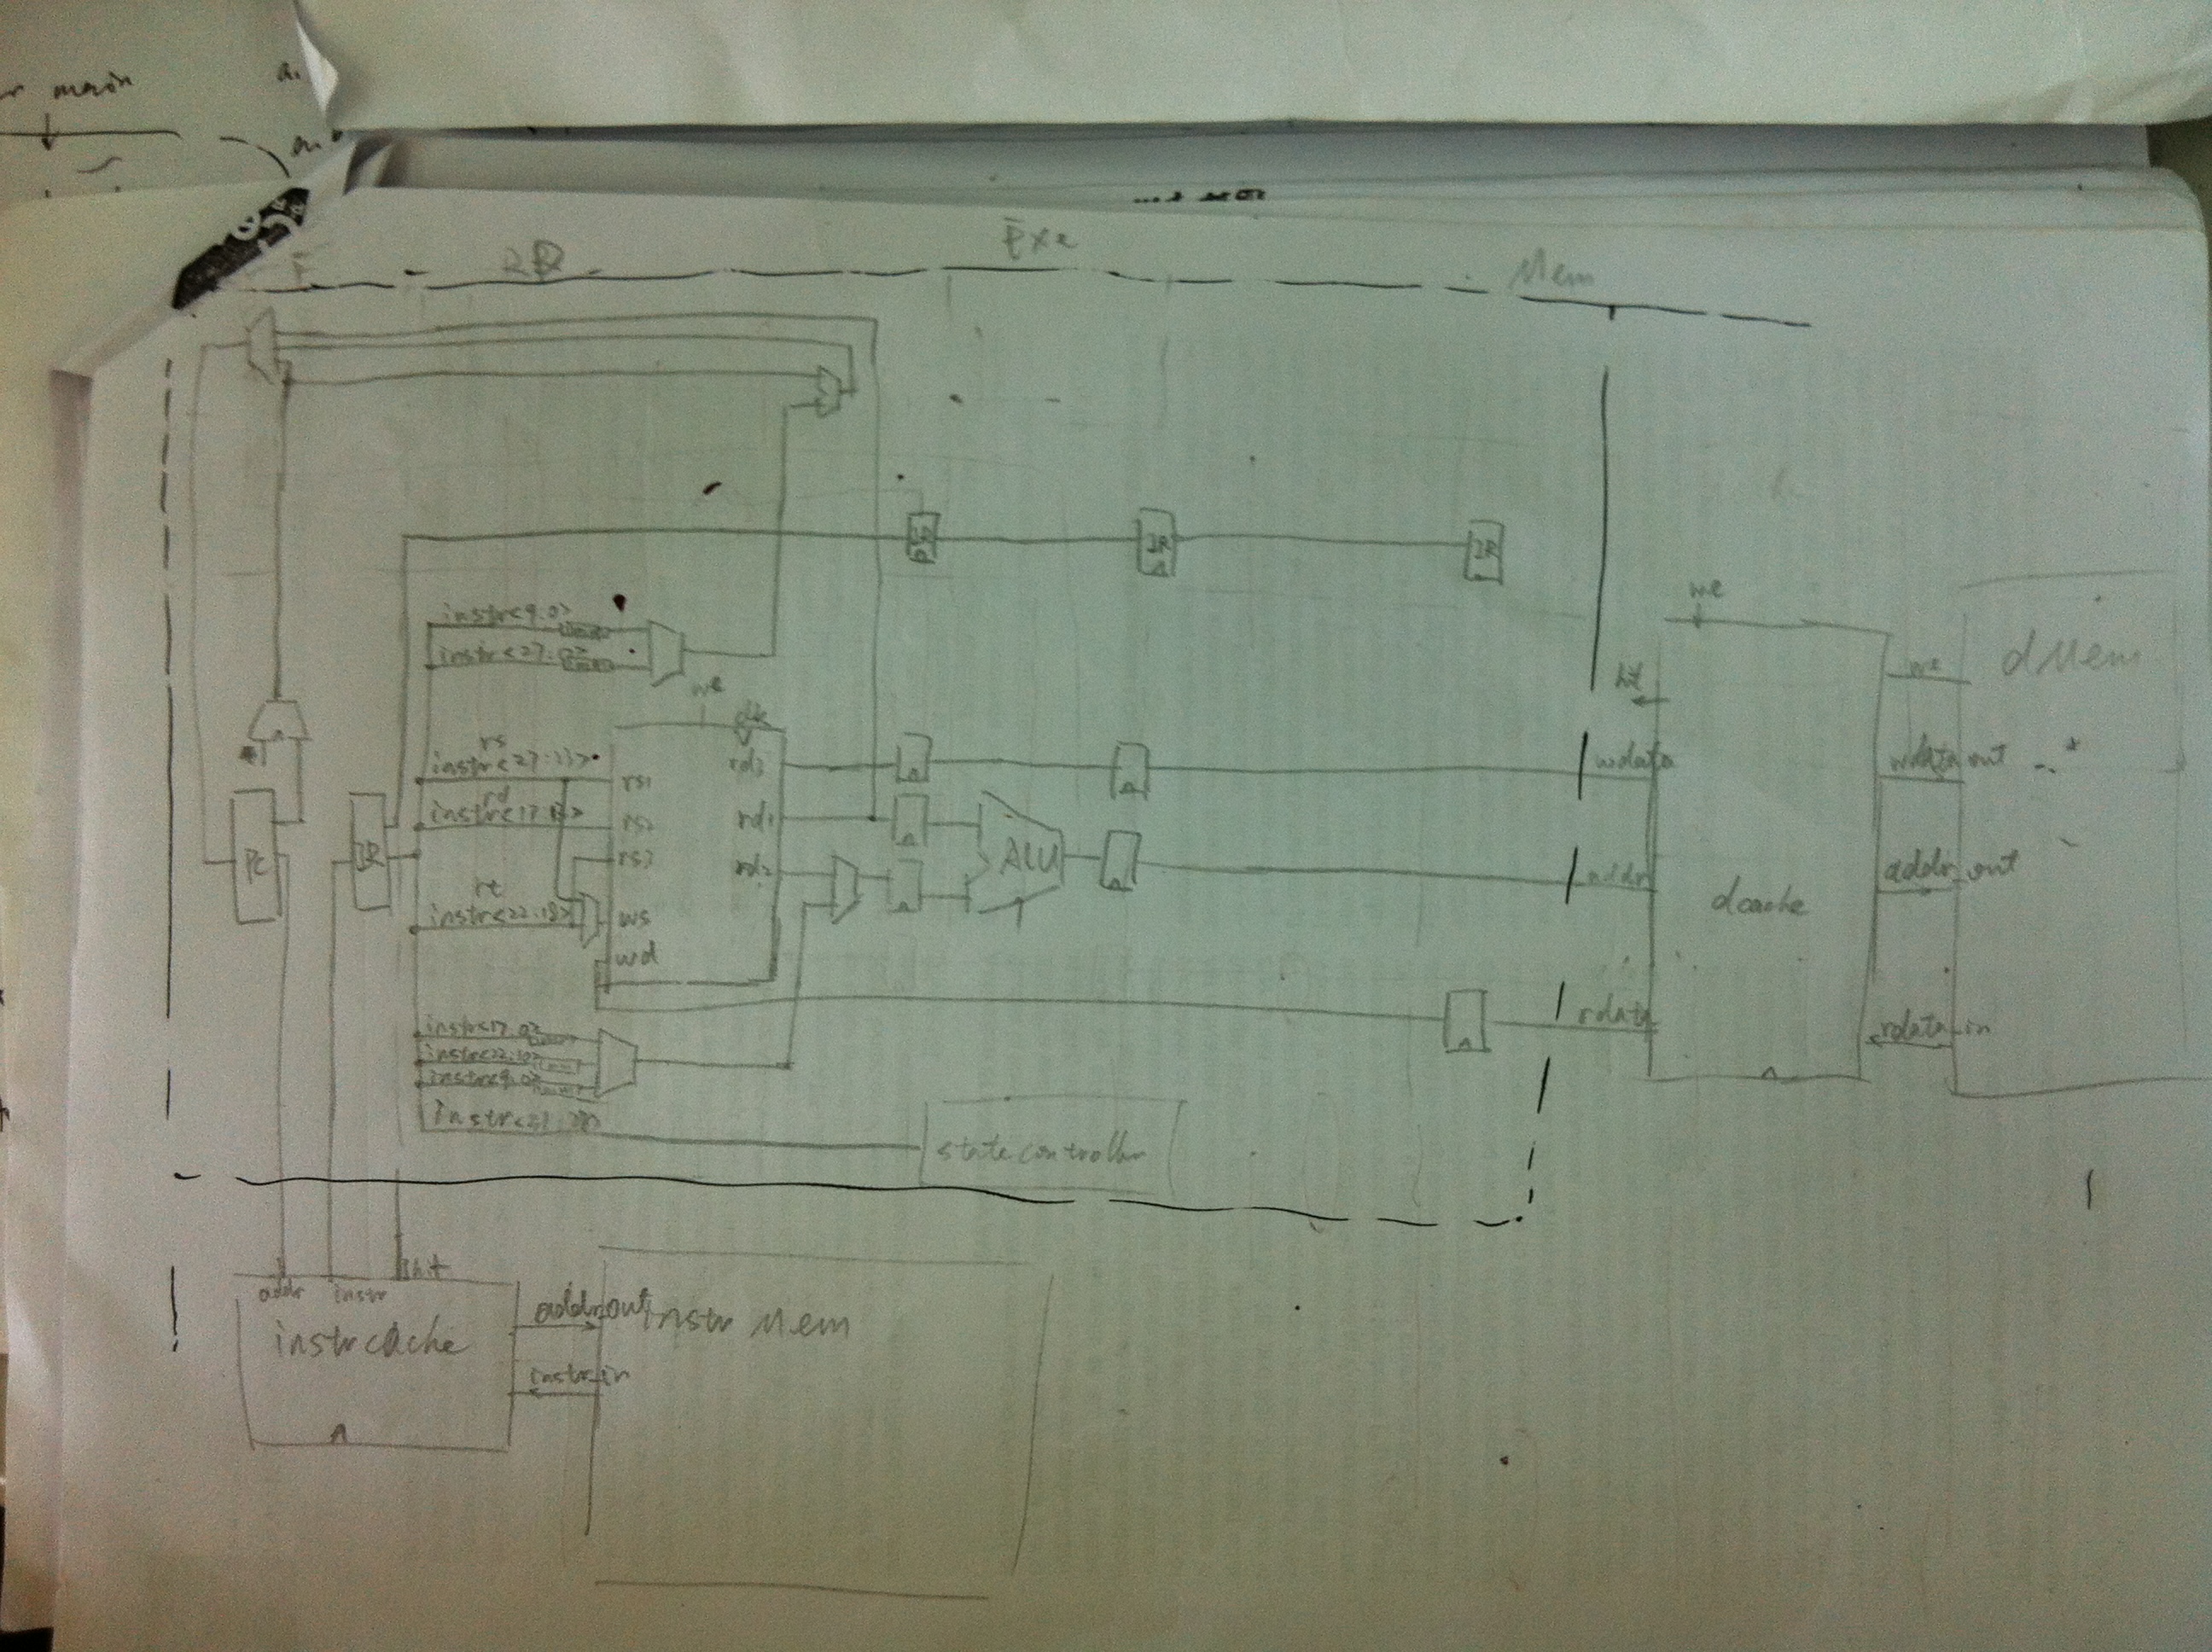 main
a.
F
Exe
Mem
IR
IR
IR
instr<9:0>
instr<27:0>
we
clk
rs
instr<27:23>
rs1
rd3
rd
rs2
rd1
rs3
rd2
rt
instr<22:18>
ws
wd
PC
IR
ALU
instr<17:0>
instr<9:0>
state controller
we
hit
wdata
addr
rdata
dcache
we
wdata_out
addr_out
rdata_in
dMem
addr
instr
hit
instr cache
addr_out
instr_in
instr Mem